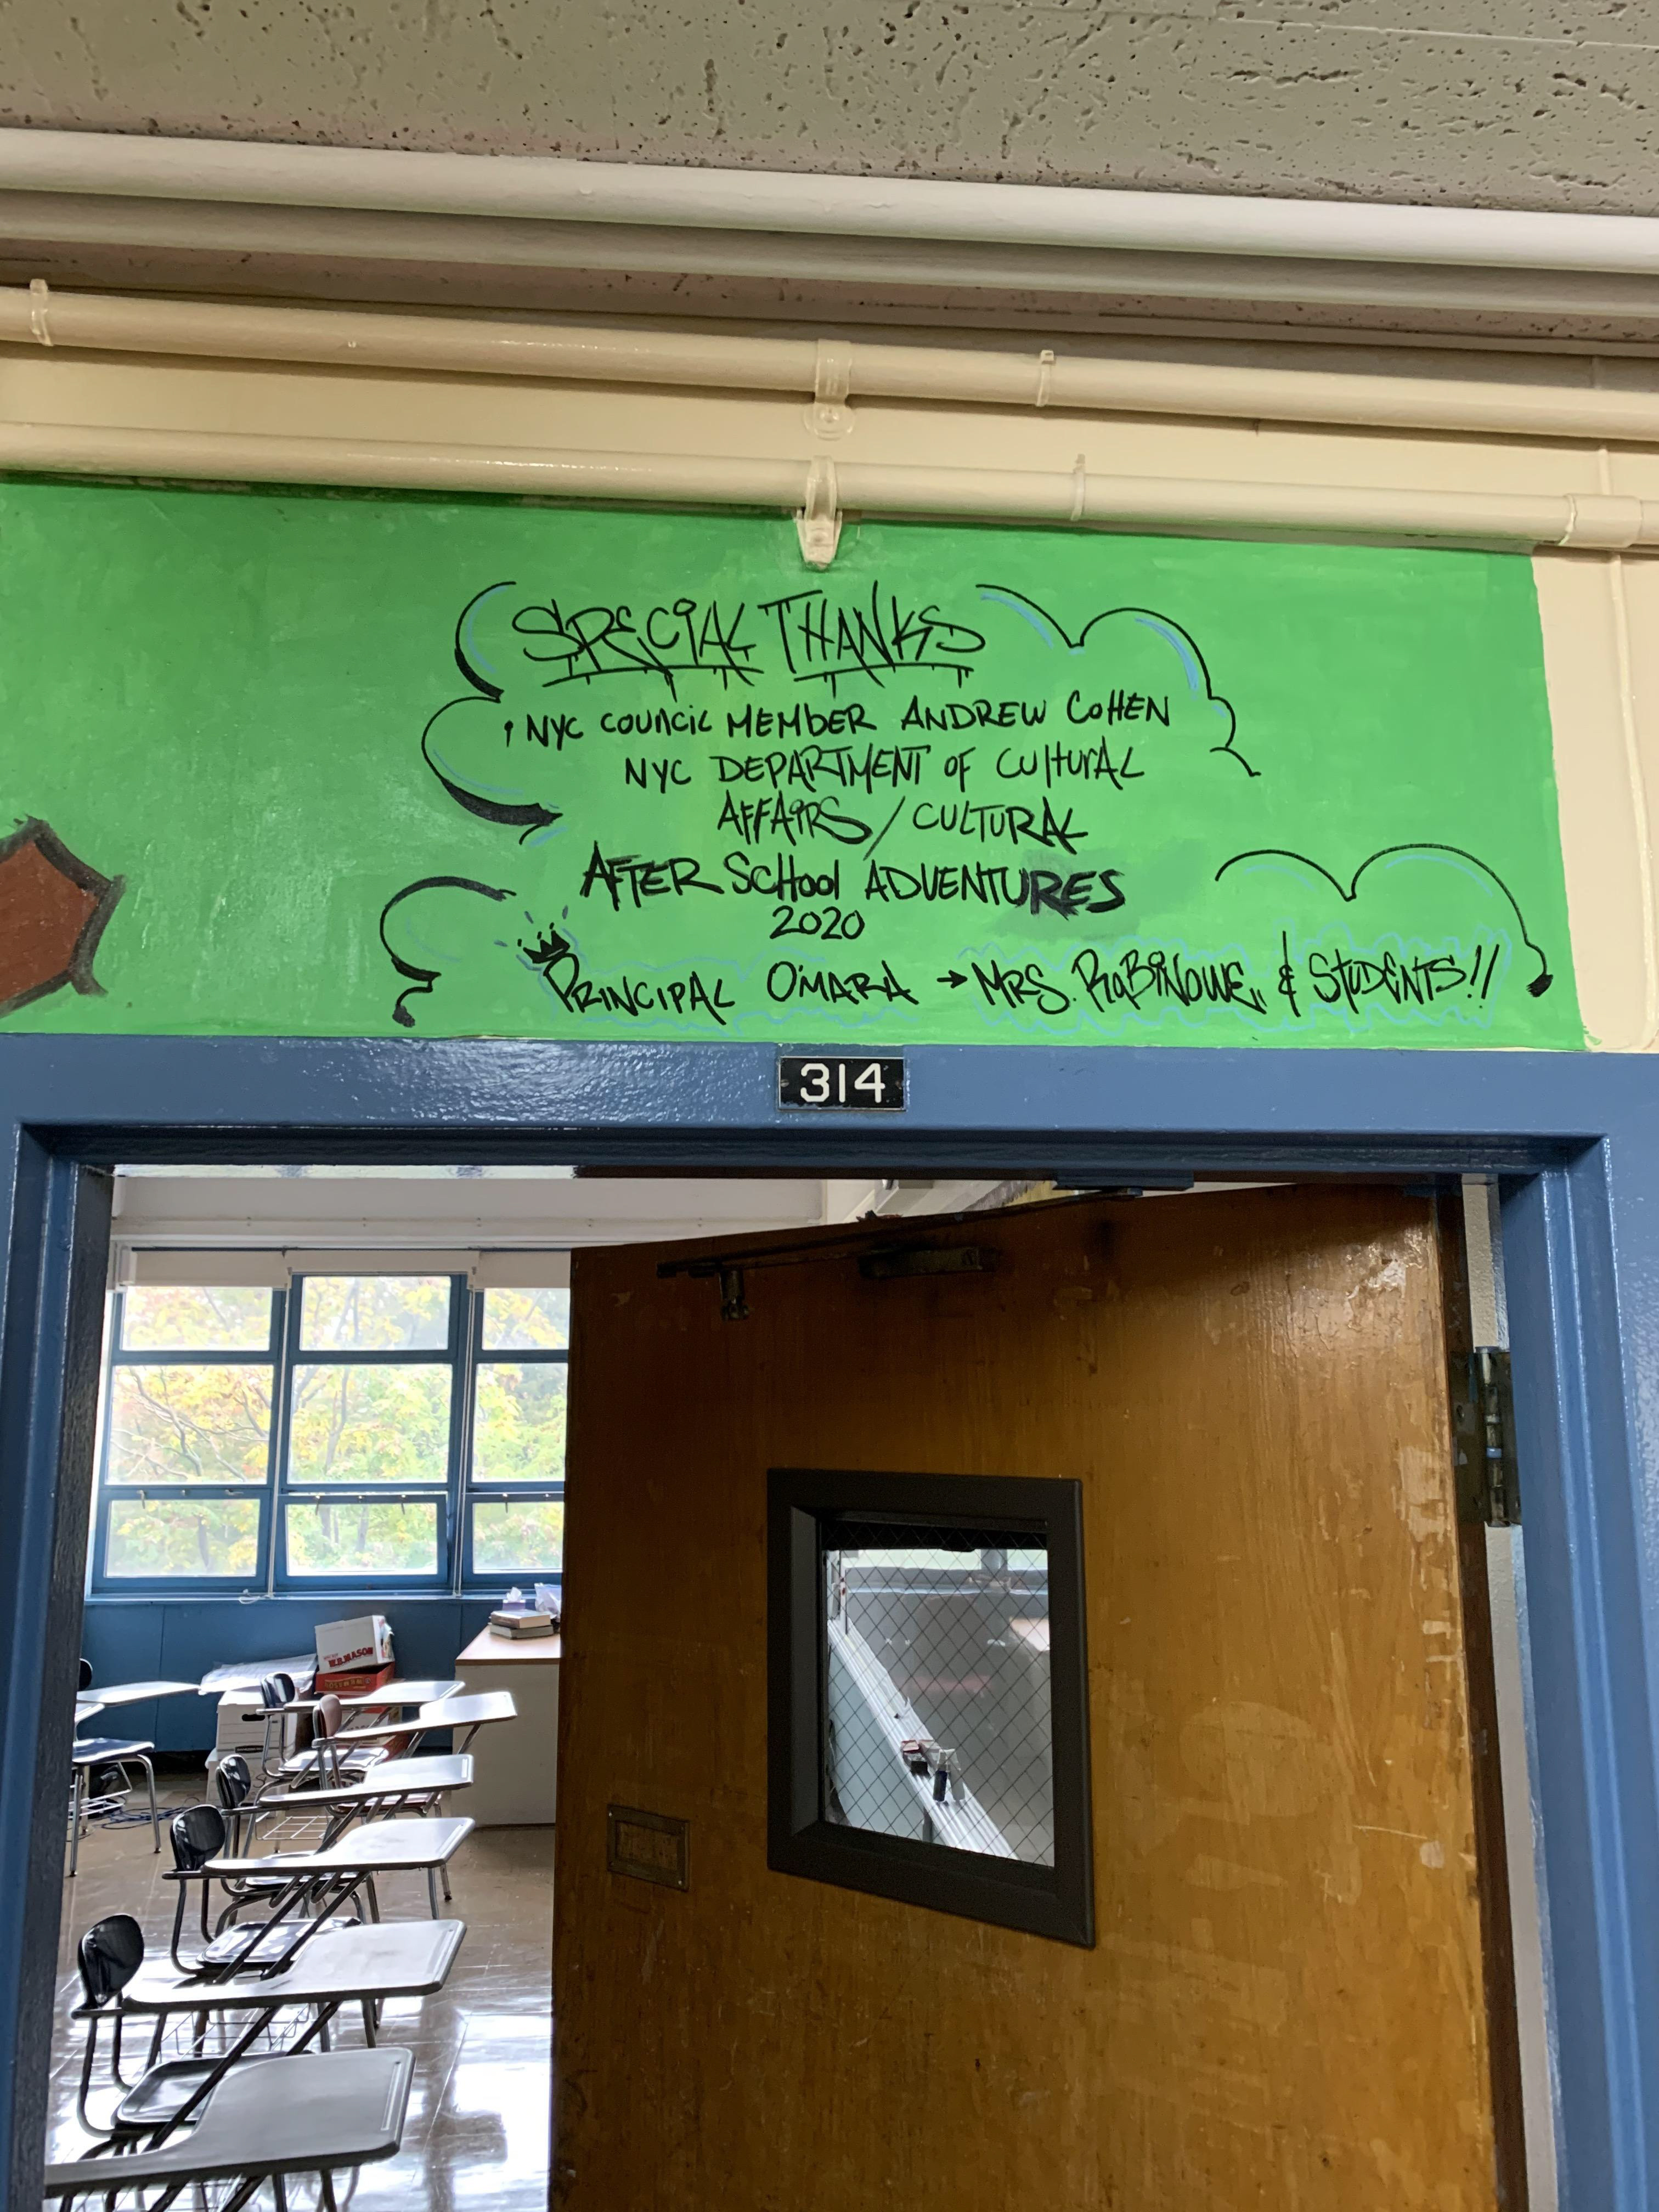 SPECIAL THANKS
NYC COUNCIL MEMBER ANDREW COHEN
NYC DEPARTMENT OF CULTURAL
AFFAIRS / CULTURAL
AFTER SCHOOL ADVENTURES
2020
PRINCIPAL O'MARA → MRS. RABINOWE, & STUDENTS!!
314
W.B.MASON